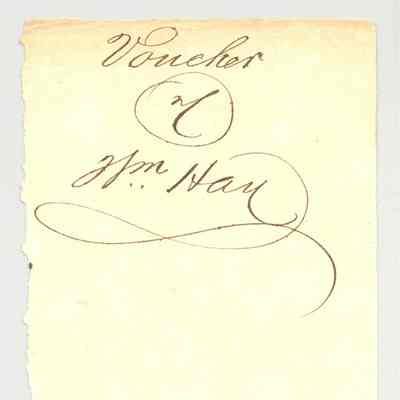 Voucher
Wm. Hay